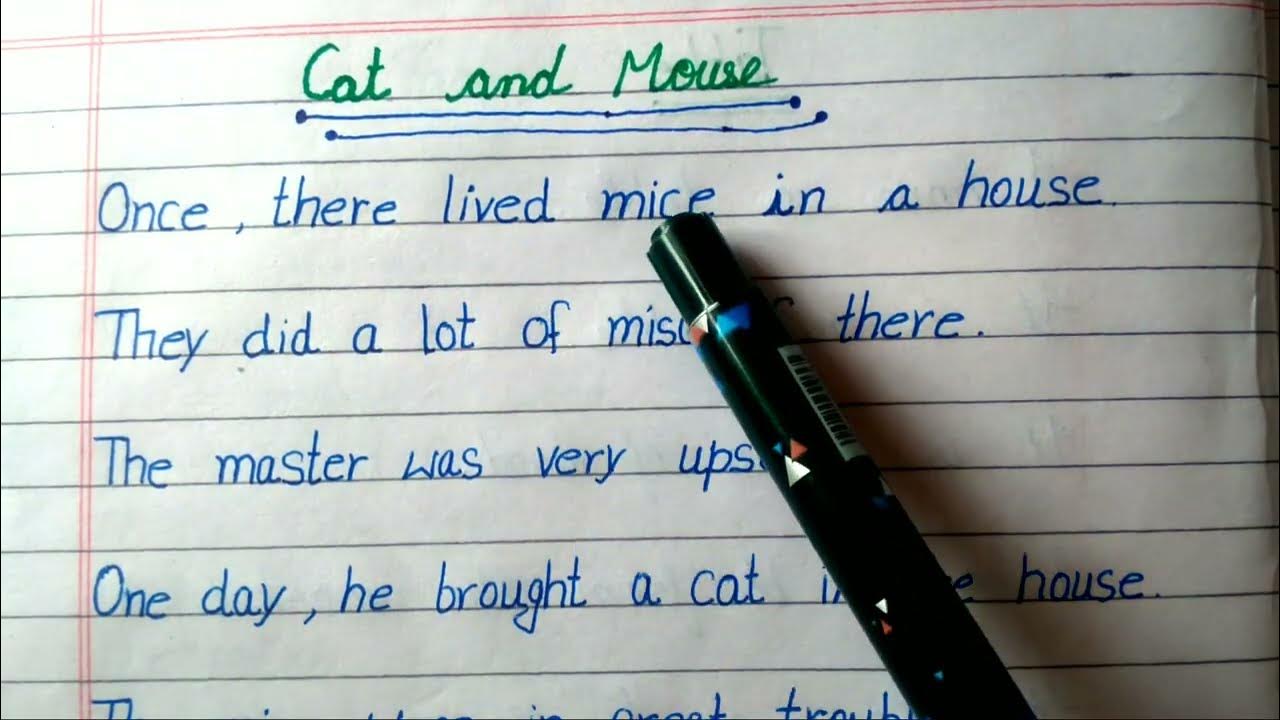 Cat and Mouse
Once, there lived mice in a house.
They did a lot of there.
The master was very
One day, he brought a cat house.
in great